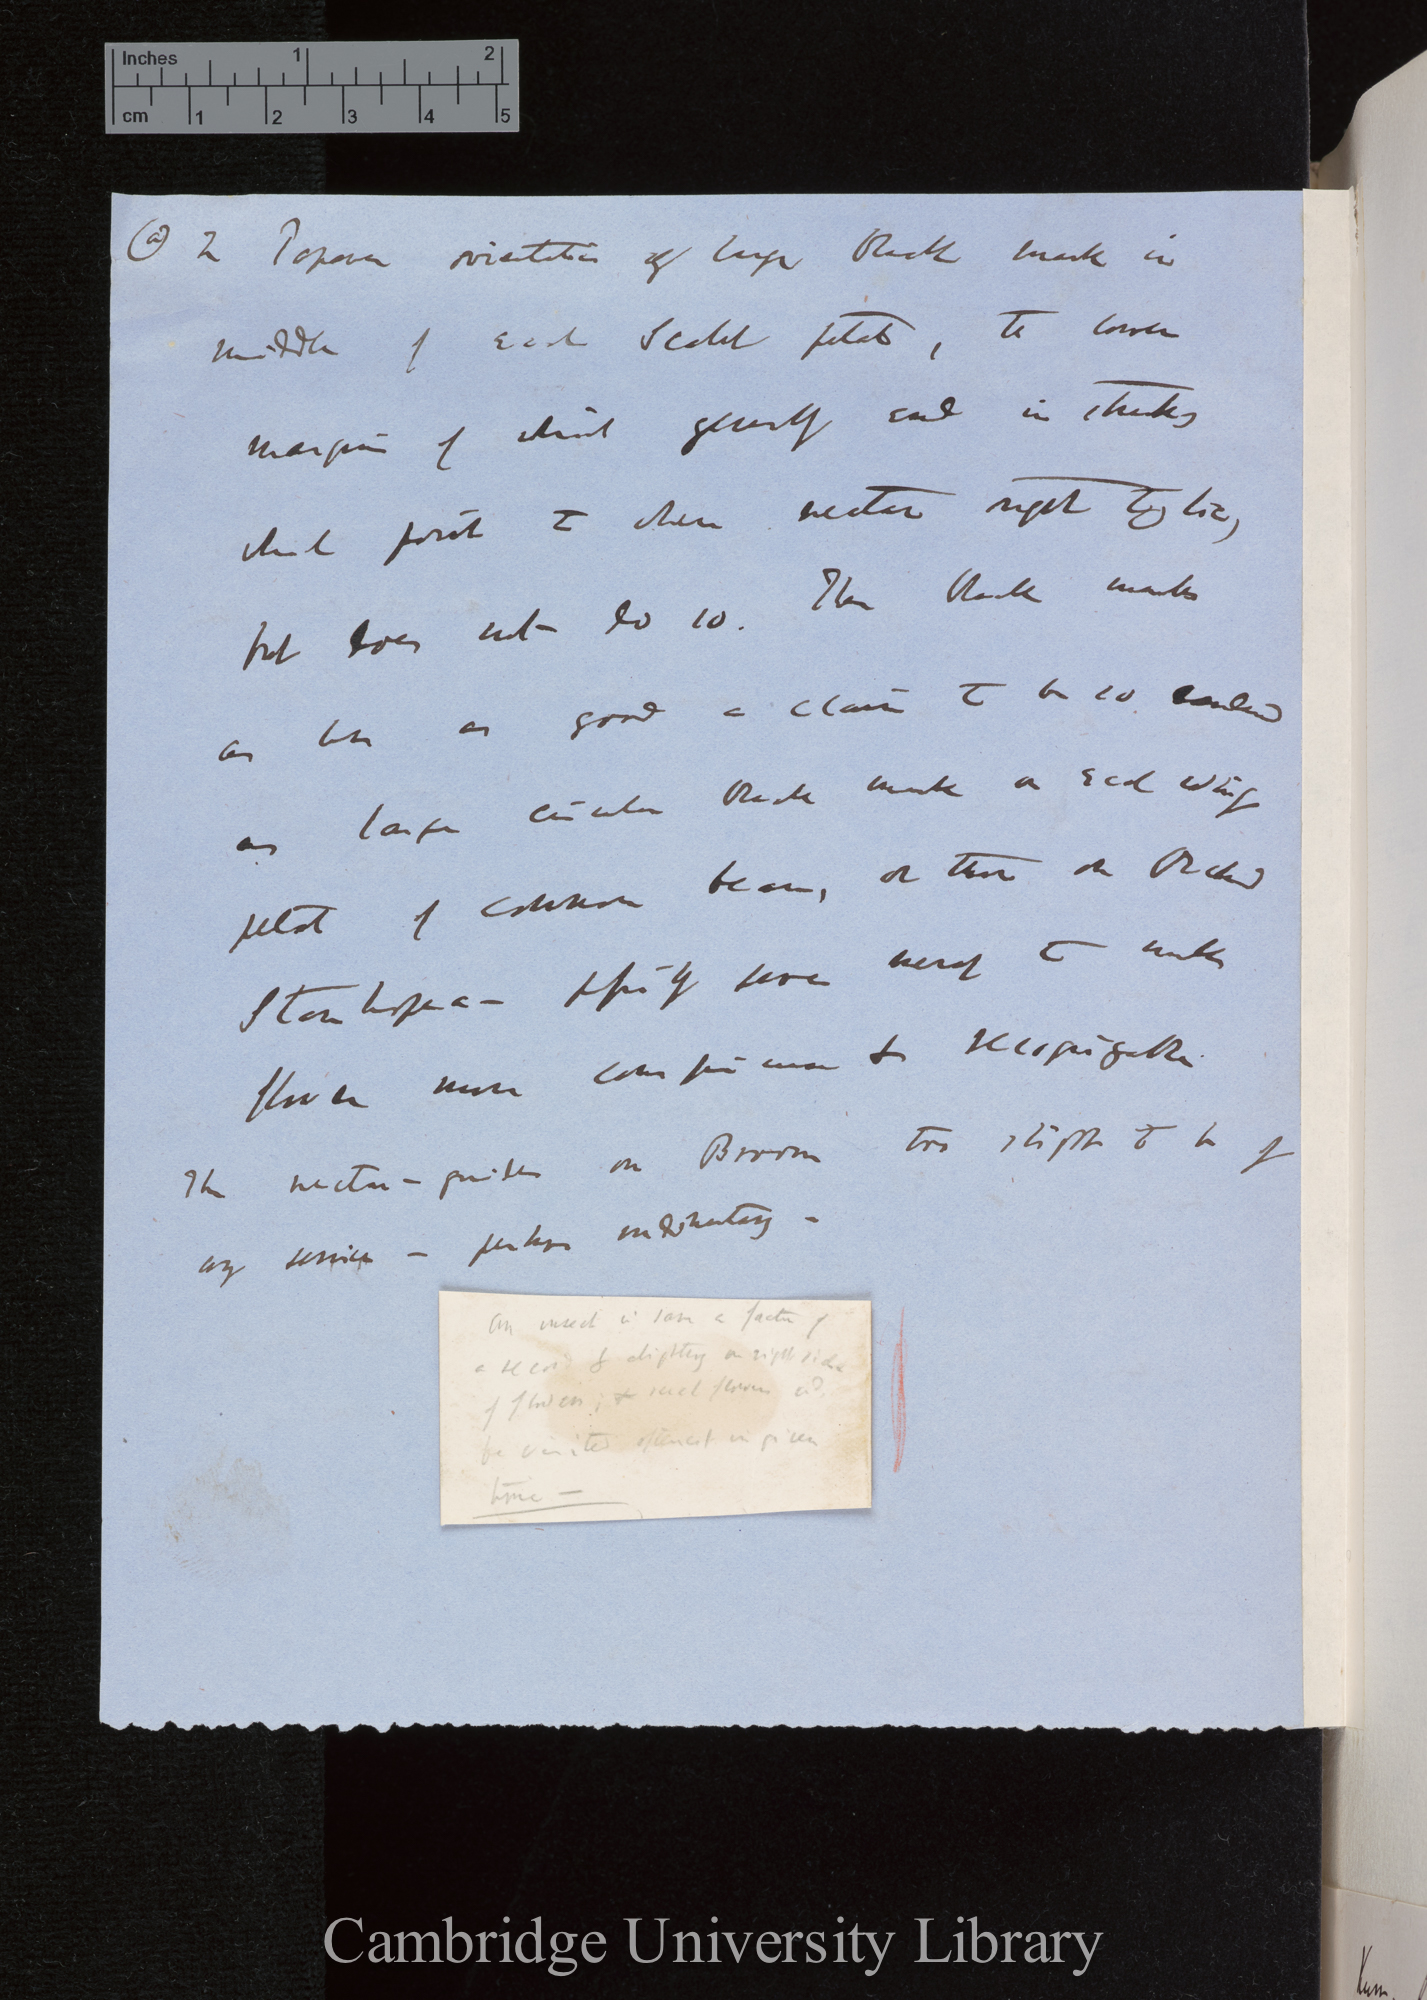 Inches 1 2
cm 1 2 3 4 5
(a) In Papaver orientalis of large black mark in
middle of each Scarlet petal, the lower
margin of which generally end in streaks
which point to where nectar might lie,
but does not do so. The black marks
as has as good a claim to be so ranked
as large circular black mark on each wing
petal of common bean, or those on Orchid
Stanhopea — simply serve merely to make
flower more conspicuous & recognizable.
The nectar-guides on Broom too slight to be of
any service — perhaps rudimentary —
An insect is save a fraction of
a second of alighting on right side
of flowers; & such flowers wd.
be visited oftenest in given
time —
Cambridge University Library